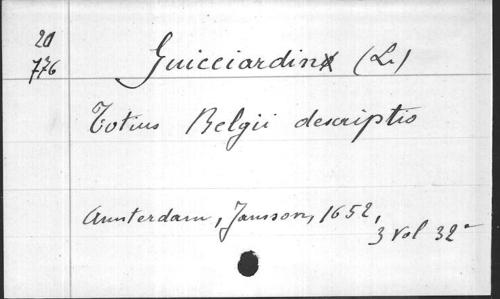 20
776
Guicciardin (L.)
Totius Belgii descriptio
Amsterdam, Jansson, 1652,
3 vol 32°